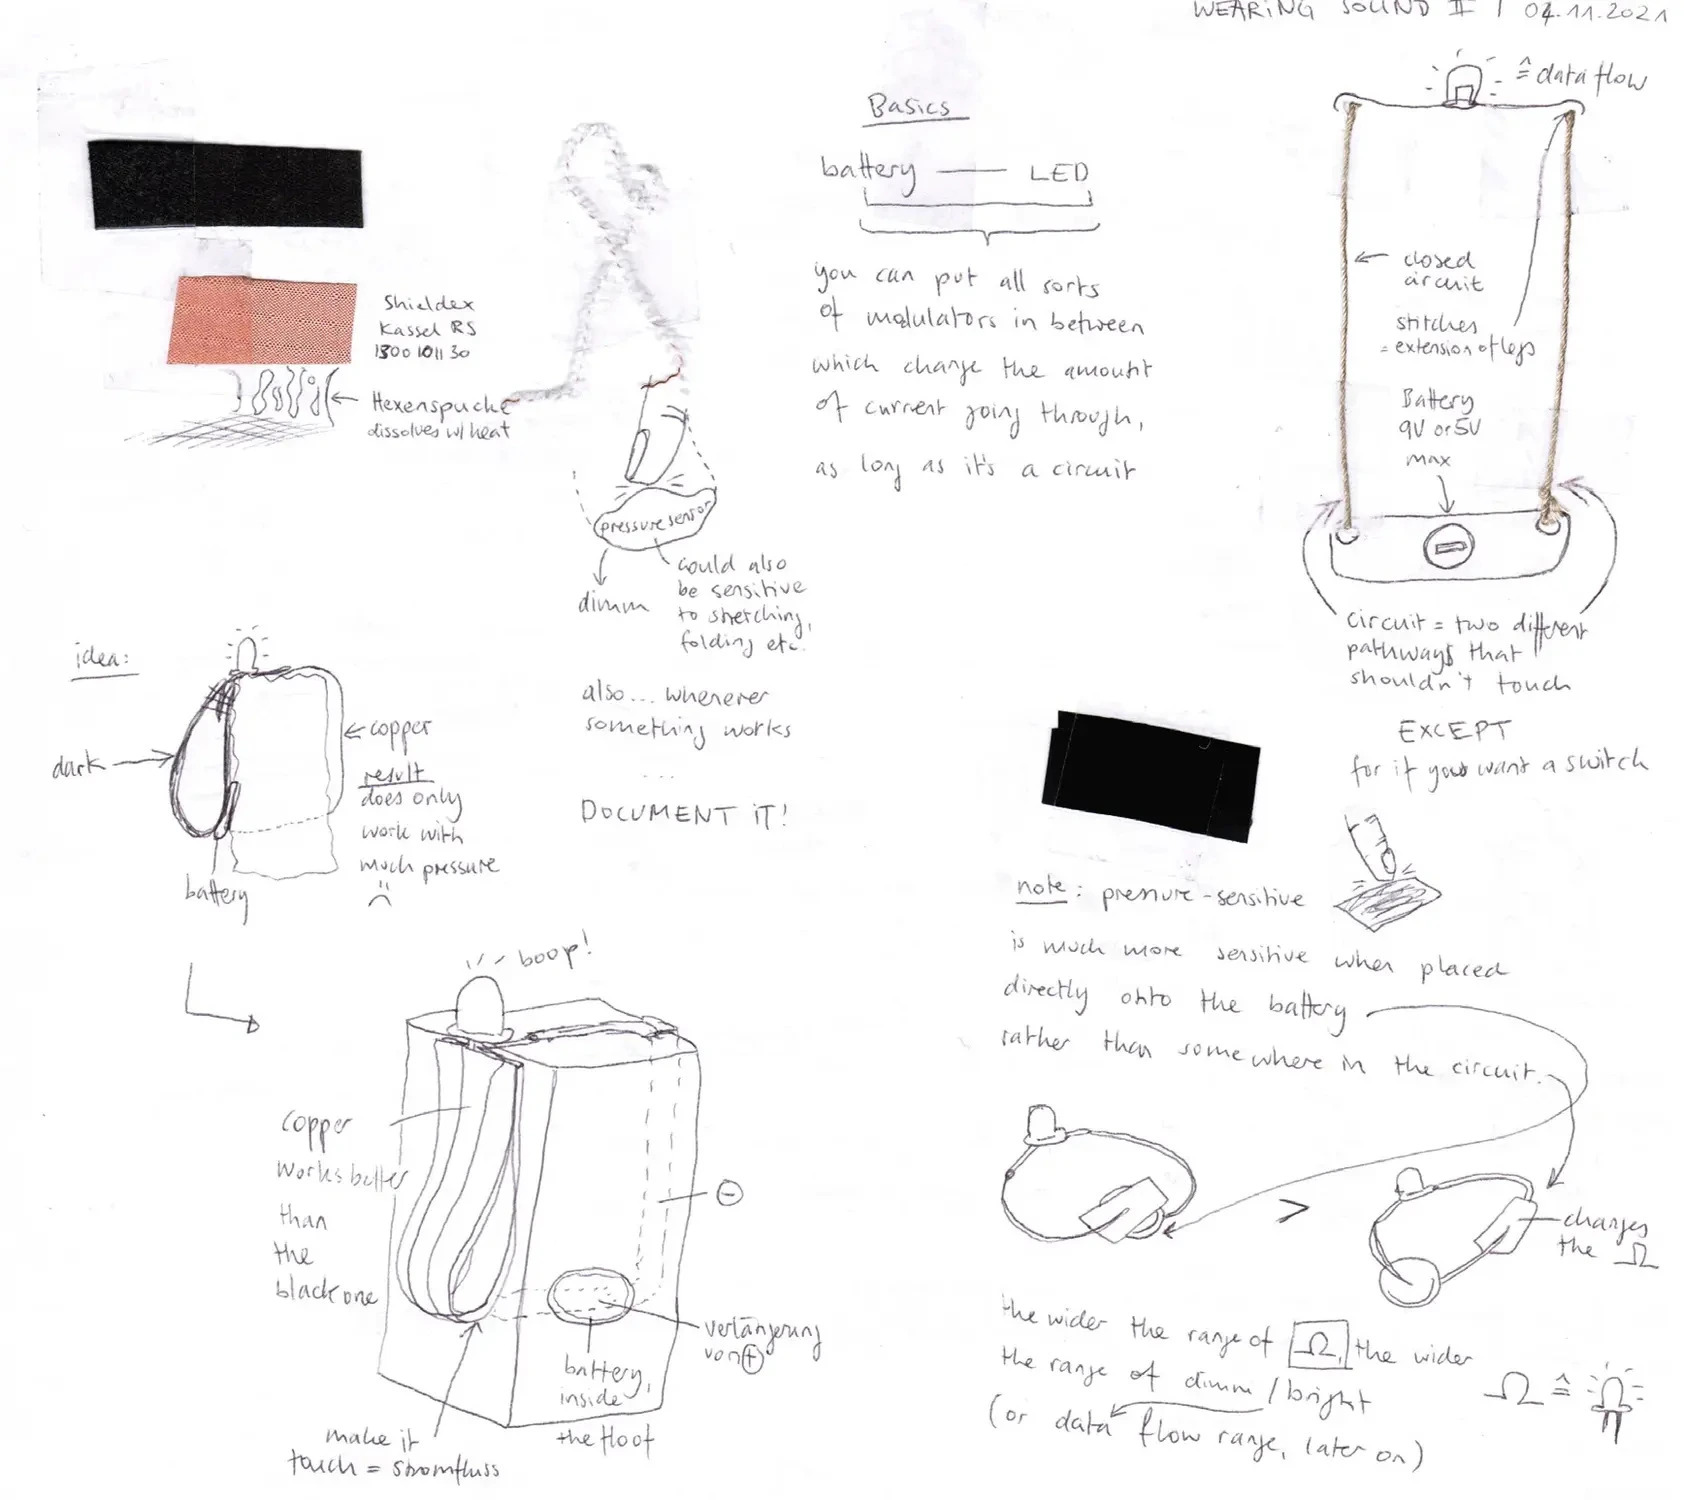 WEARING SOUND II | 04.11.2021
≙ data flow
Basics
battery — LED
you can put all sorts
of modulators in between
which change the amount
of current going through,
as long as it's a circuit
Shieldex
Kassel RS
1300 1011 30
Hexenspucke
dissolves w/ heat
pressure sensor
dimm
could also
be sensitive
to stretching,
folding etc.
also... whenever
something works
...
DOCUMENT IT!
closed
circuit
stitches
= extension of legs
Battery
9V or 5V
max
circuit = two different
pathways that
shouldn't touch
EXCEPT
for if you want a switch
idea:
dark
copper
result
does only
work with
much pressure
battery
boop!
copper
works better
than
the
black one
-
verlängerung
von +
battery,
inside
the floof
make it
touch = stromfluss
note: pressure-sensitive
is much more sensitive when placed
directly onto the battery
rather than somewhere in the circuit.
>
changes
the Ω
the wider the range of Ω, the wider
the range of dimm / bright
(or data flow range, later on)
Ω ≙